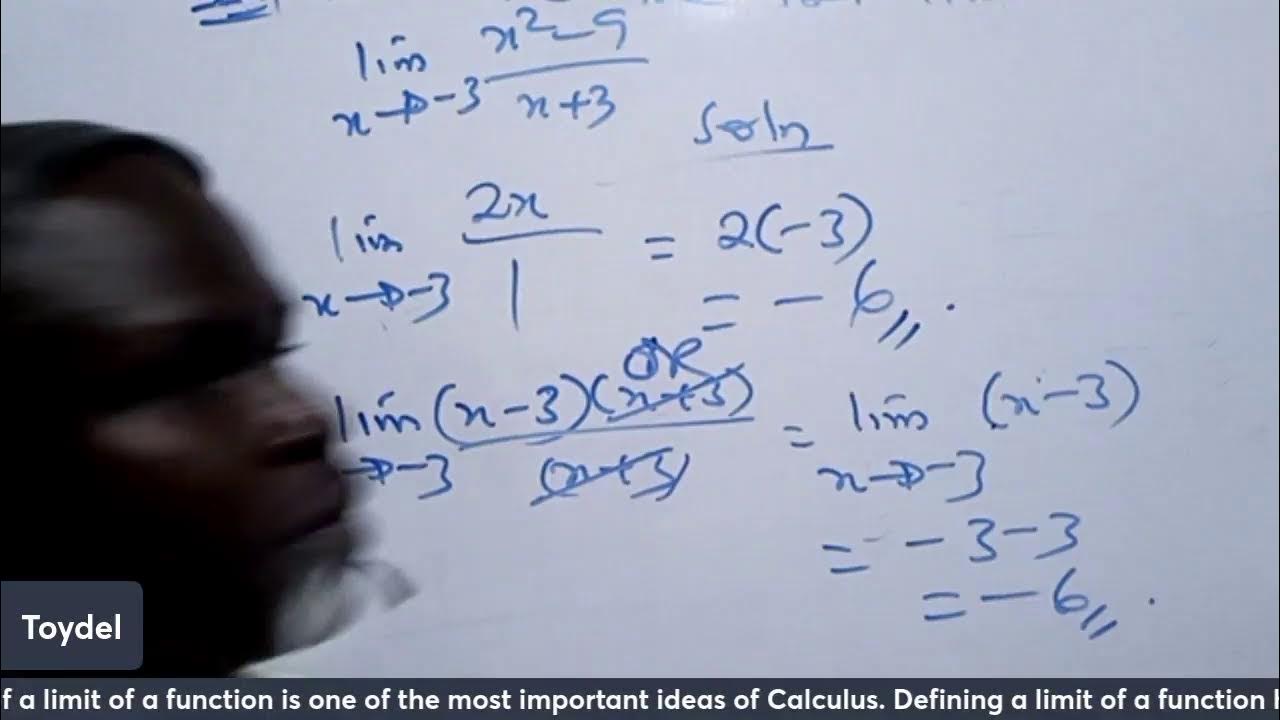 lim x²-9
x→-3 x+3
Soln
lim 2x = 2(-3)
x→-3 1 = -6,, .
OR
lim (x-3)(x+3) = lim (x-3)
→-3 (x+3) x→-3
= -3-3
= -6,, .
Toydel
f a limit of a function is one of the most important ideas of Calculus. Defining a limit of a function